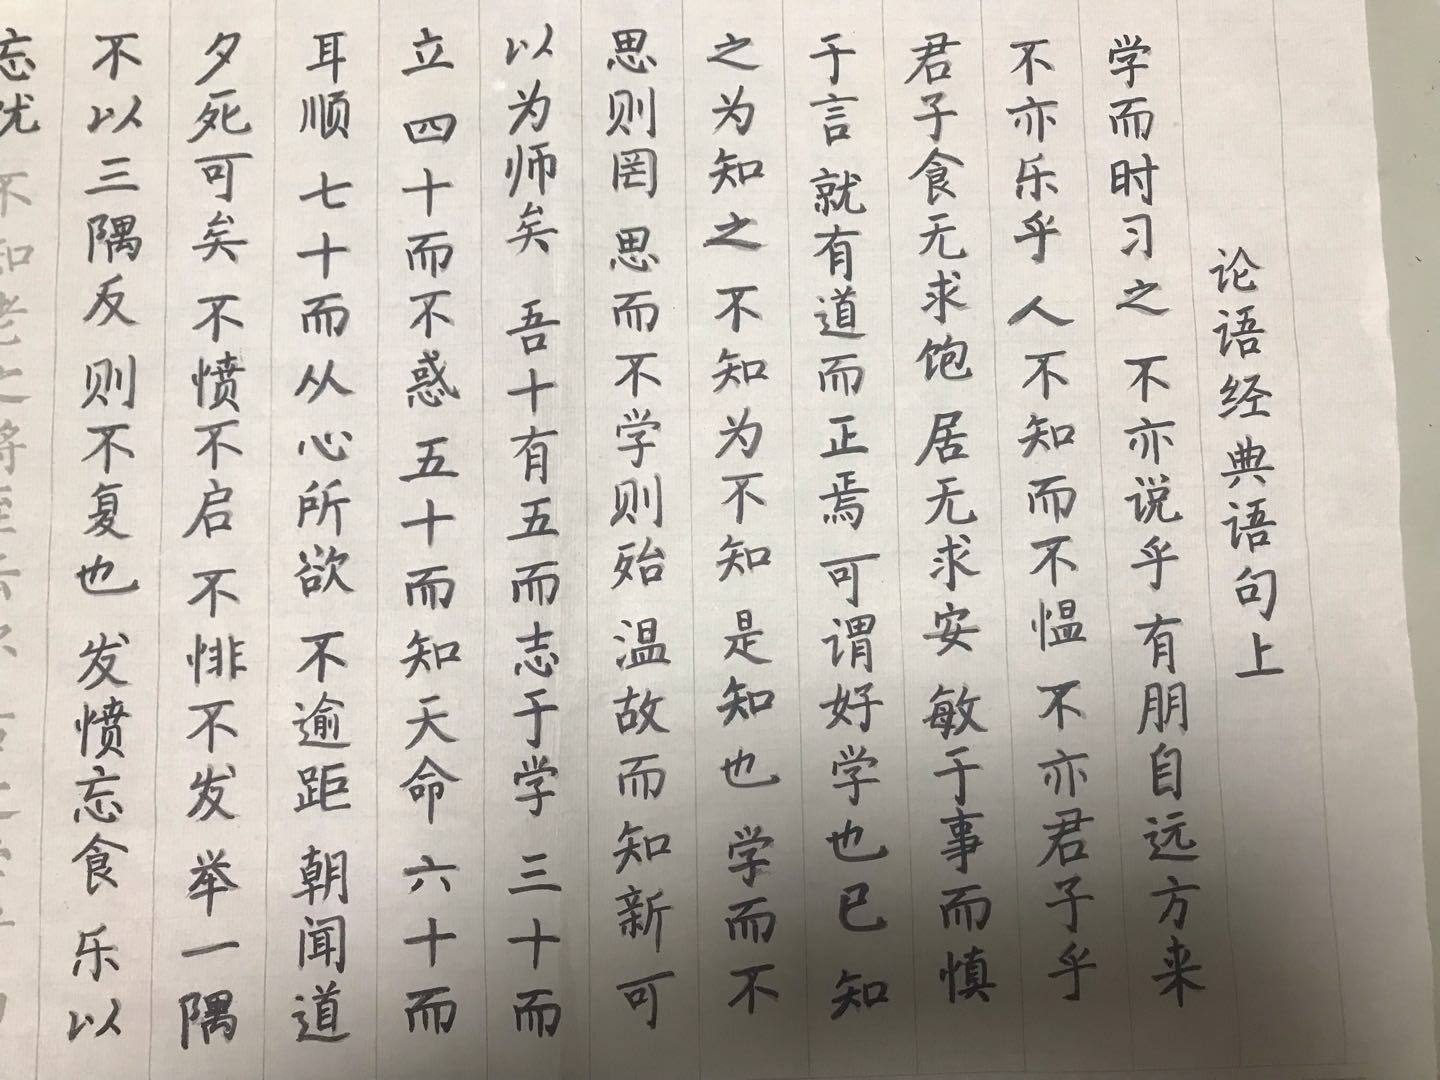 论语经典语句上
学而时习之 不亦说乎 有朋自远方来
不亦乐乎 人不知而不愠 不亦君子乎
君子食无求饱 居无求安 敏于事而慎
于言 就有道而正焉 可谓好学也已 知
之为知之 不知为不知 是知也 学而不
思则罔 思而不学则殆 温故而知新 可
以为师矣 吾十有五而志于学 三十而
立 四十而不惑 五十而知天命 六十而
耳顺 七十而从心所欲 不逾距 朝闻道
夕死可矣 不愤不启 不悱不发 举一隅
不以三隅反 则不复也 发愤忘食 乐以
忘忧 不知老之将至云尔